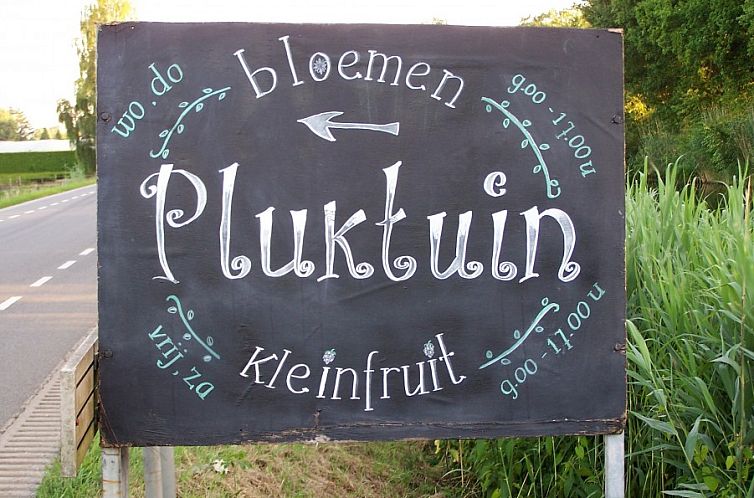 bloemen
wo, do
9.00 - 17.00 u
Pluktuin
vrij, za
9.00 - 17.00 u
kleinfruit